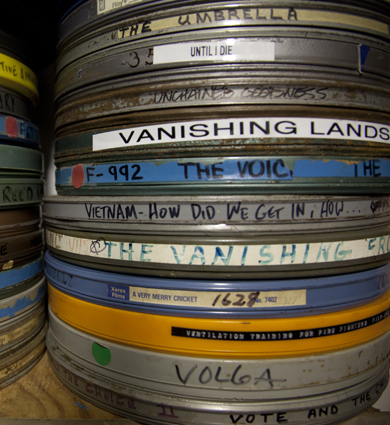 THE UMBRELLA
35
UNTIL I DIE
UNCHAINED GOODNESS
VANISHING LANDS
F-992 THE VOIC. THE
VIETNAM-HOW DID WE GET IN, HOW...
THE VANISHING
Xerox Films A VERY MERRY CRICKET 1628 No. 7402
VENTILATION TRAINING FOR FIRE FIGHTERS
VOLGA
THE CHOICE II VOTE AND THE